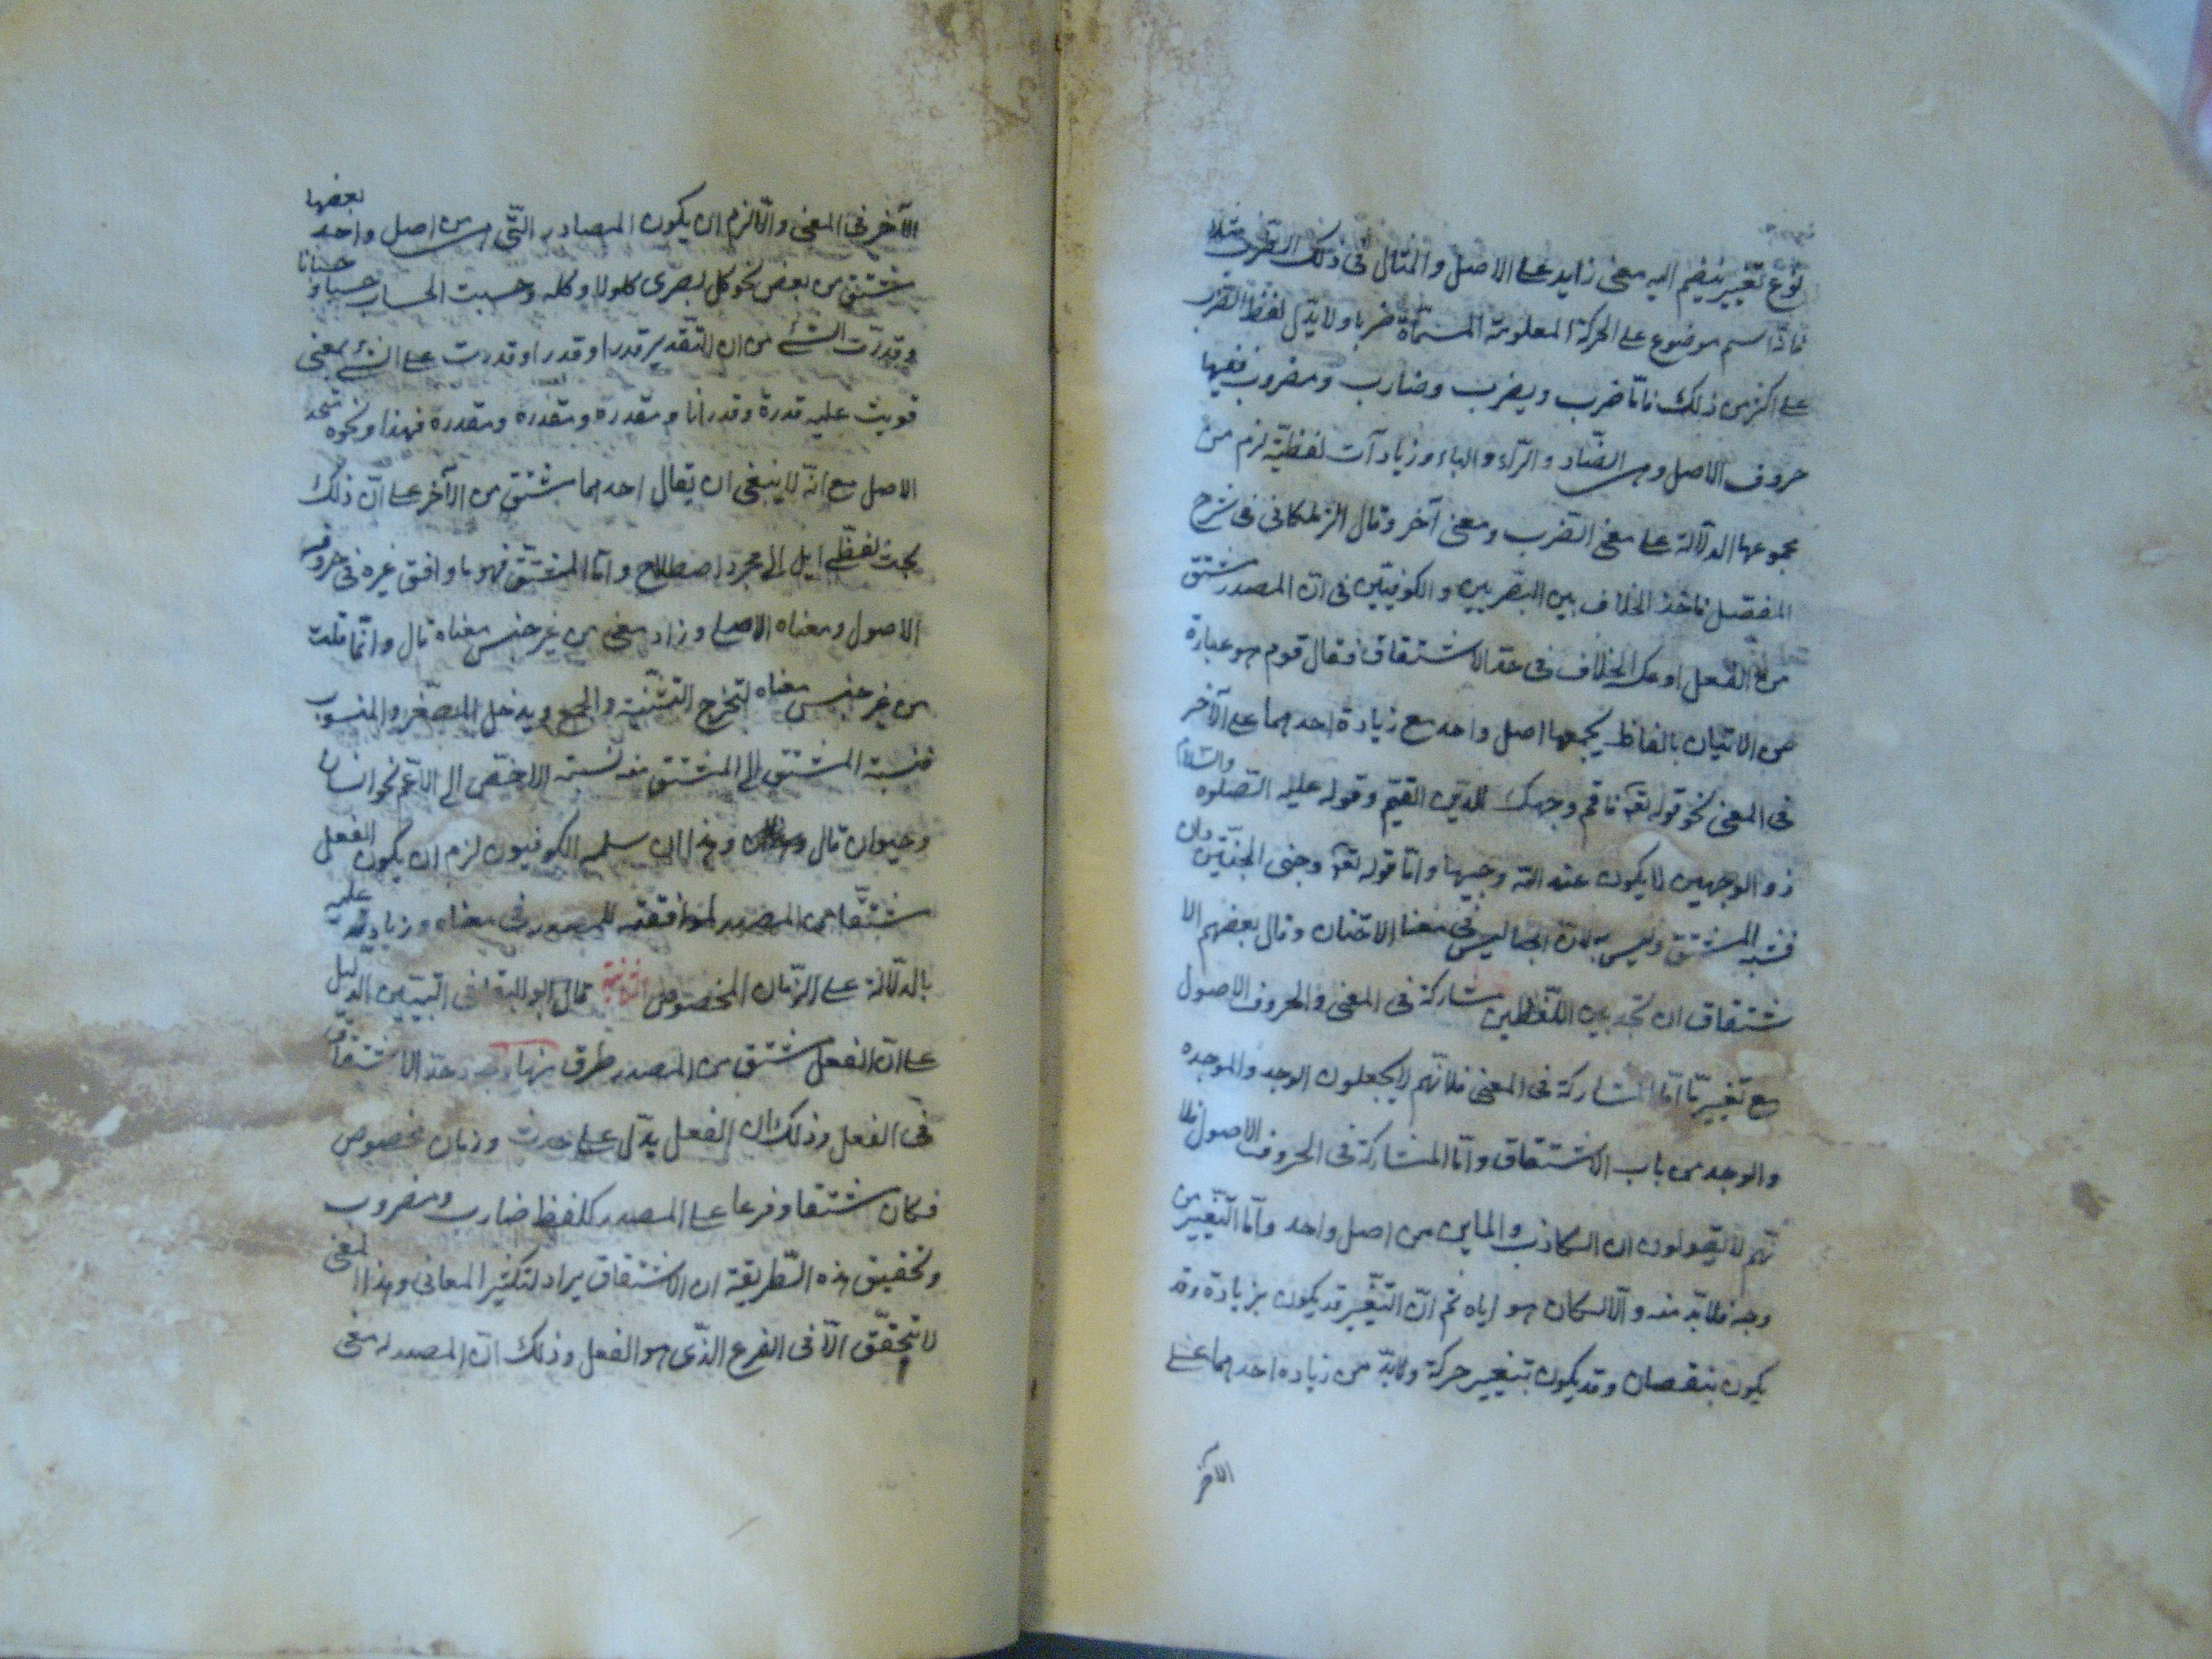 نوع تغيير ينضم اليه معنى زايد على الاصل والمثال فى ذلك الضرب مثلا
فانّه اسم موضوع على الحركة المعلومة المسمّاة ضربا ولا يدل لفظ الضرب
على اكثر من ذلك فامّا ضرب ويضرب وضارب ومضروب ففيها
حروف الاصل وهى الضّاد والرّاء والباء وزيادآت لفظيّة لزم من
مجموعها الدلالة على معنى الضرب ومعنى آخر وقال الزملكانى فى شرح
المفصّل ماخذ الخلاف بين البصريين والكوفيّين فى انّ المصدر مشتق
من الفعل او عكسه الخلاف فى حدّ الاشتقاق فقال قوم هو عبارة
عن الاتيان بالفاظ يجمعها اصل واحد مع زيادة احدهما على الآخر
فى المعنى نحو قوله تعه فاقم وجهك للدين القيّم وقوله عليه الصّلوة والسّلام
ذو الوجهين لا يكون عند الله وجيها وامّا قوله تعه وجنى الجنّتين دان
فشبه المشتق وليس به لانّ الجنا ليس فى معنا الاجتنان وقال بعضهم الا
شتقاق ان تجد بين اللّفظين مشاركة فى المعنى والحروف الاصول
مع تغيير مّا امّا المشاركة فى المعنى فلانّهم لا يجعلون الوجد والموجده
والوجد من باب الاشتقاق وامّا المشاركة فى الحروف الاصول فلا
نّهم لا يقولون ان الكاذب والماين من اصل واحد وامّا التّغيير من
وجه فلا بدّ منه والّا لكان هو اياه ثم انّ التّغيير قد يكون بزيادة وقد
يكون بنقصان وقد يكون بتغيير حركة ولا بدّ من زياده احدهما على
الآخر
الآخر فى المعنى والّا لزم ان يكون المصادر التّى من اصل واحد بعضها
مشتق من بعض نحو كل بصرى كلولا وكله وحسبت الحساب حسبا وحسبانا
وقدرت الشئ من ان التّقدير قدرا وقدرا وقدرت على الشئ بمعنى
قويت عليه قدرة وقدرانا ومقدره ومقدرة ومقدرة فهذا ونحوه متحد
الاصل مع انّه لا ينبغى ان يقال احدهما مشتق من الآخر على انّ ذلك
بحث لفظى ايل الى مجرد اصطلاح وامّا المشتقّ فهو ما وافق غيره فى حروفه
الاصول ومعناه الاصلى وزاد معنى من غير جنس معناه قال وانّما قلت
من غير جنس معناه لتخرج التثنية والجمع ويدخل المصغّر والمنسوب
فنسبة المشتق الى المشتق منه نسبة الاخصّ الى الاعم نحو انسان
وحيوان قال وهذا ان سلمه الكوفيون لزم ان يكون الفعل
مشتقّا من المصدر لموافقته للمصدر فى معناه وزيادته عليه
بالدّلالة على الزّمان المخصوص الثانية قال ابو البقا فى التبيين الدّليل
على انّ الفعل مشتق من المصدر طرق منها وجود حدّ الاشتقاق
فى الفعل وذلك ان الفعل يدّل على حدث وزمان مخصوص
فكان مشتقا وفرعا على المصدر كلفظ ضارب ومضروب
وتحقيق هذه الطّريقة ان الاشتقاق يراد لتكثير المعانى وهذا المعنى
لا يتحقّق الّا فى الفرع الذّى هو الفعل وذلك انّ المصدر له معنى